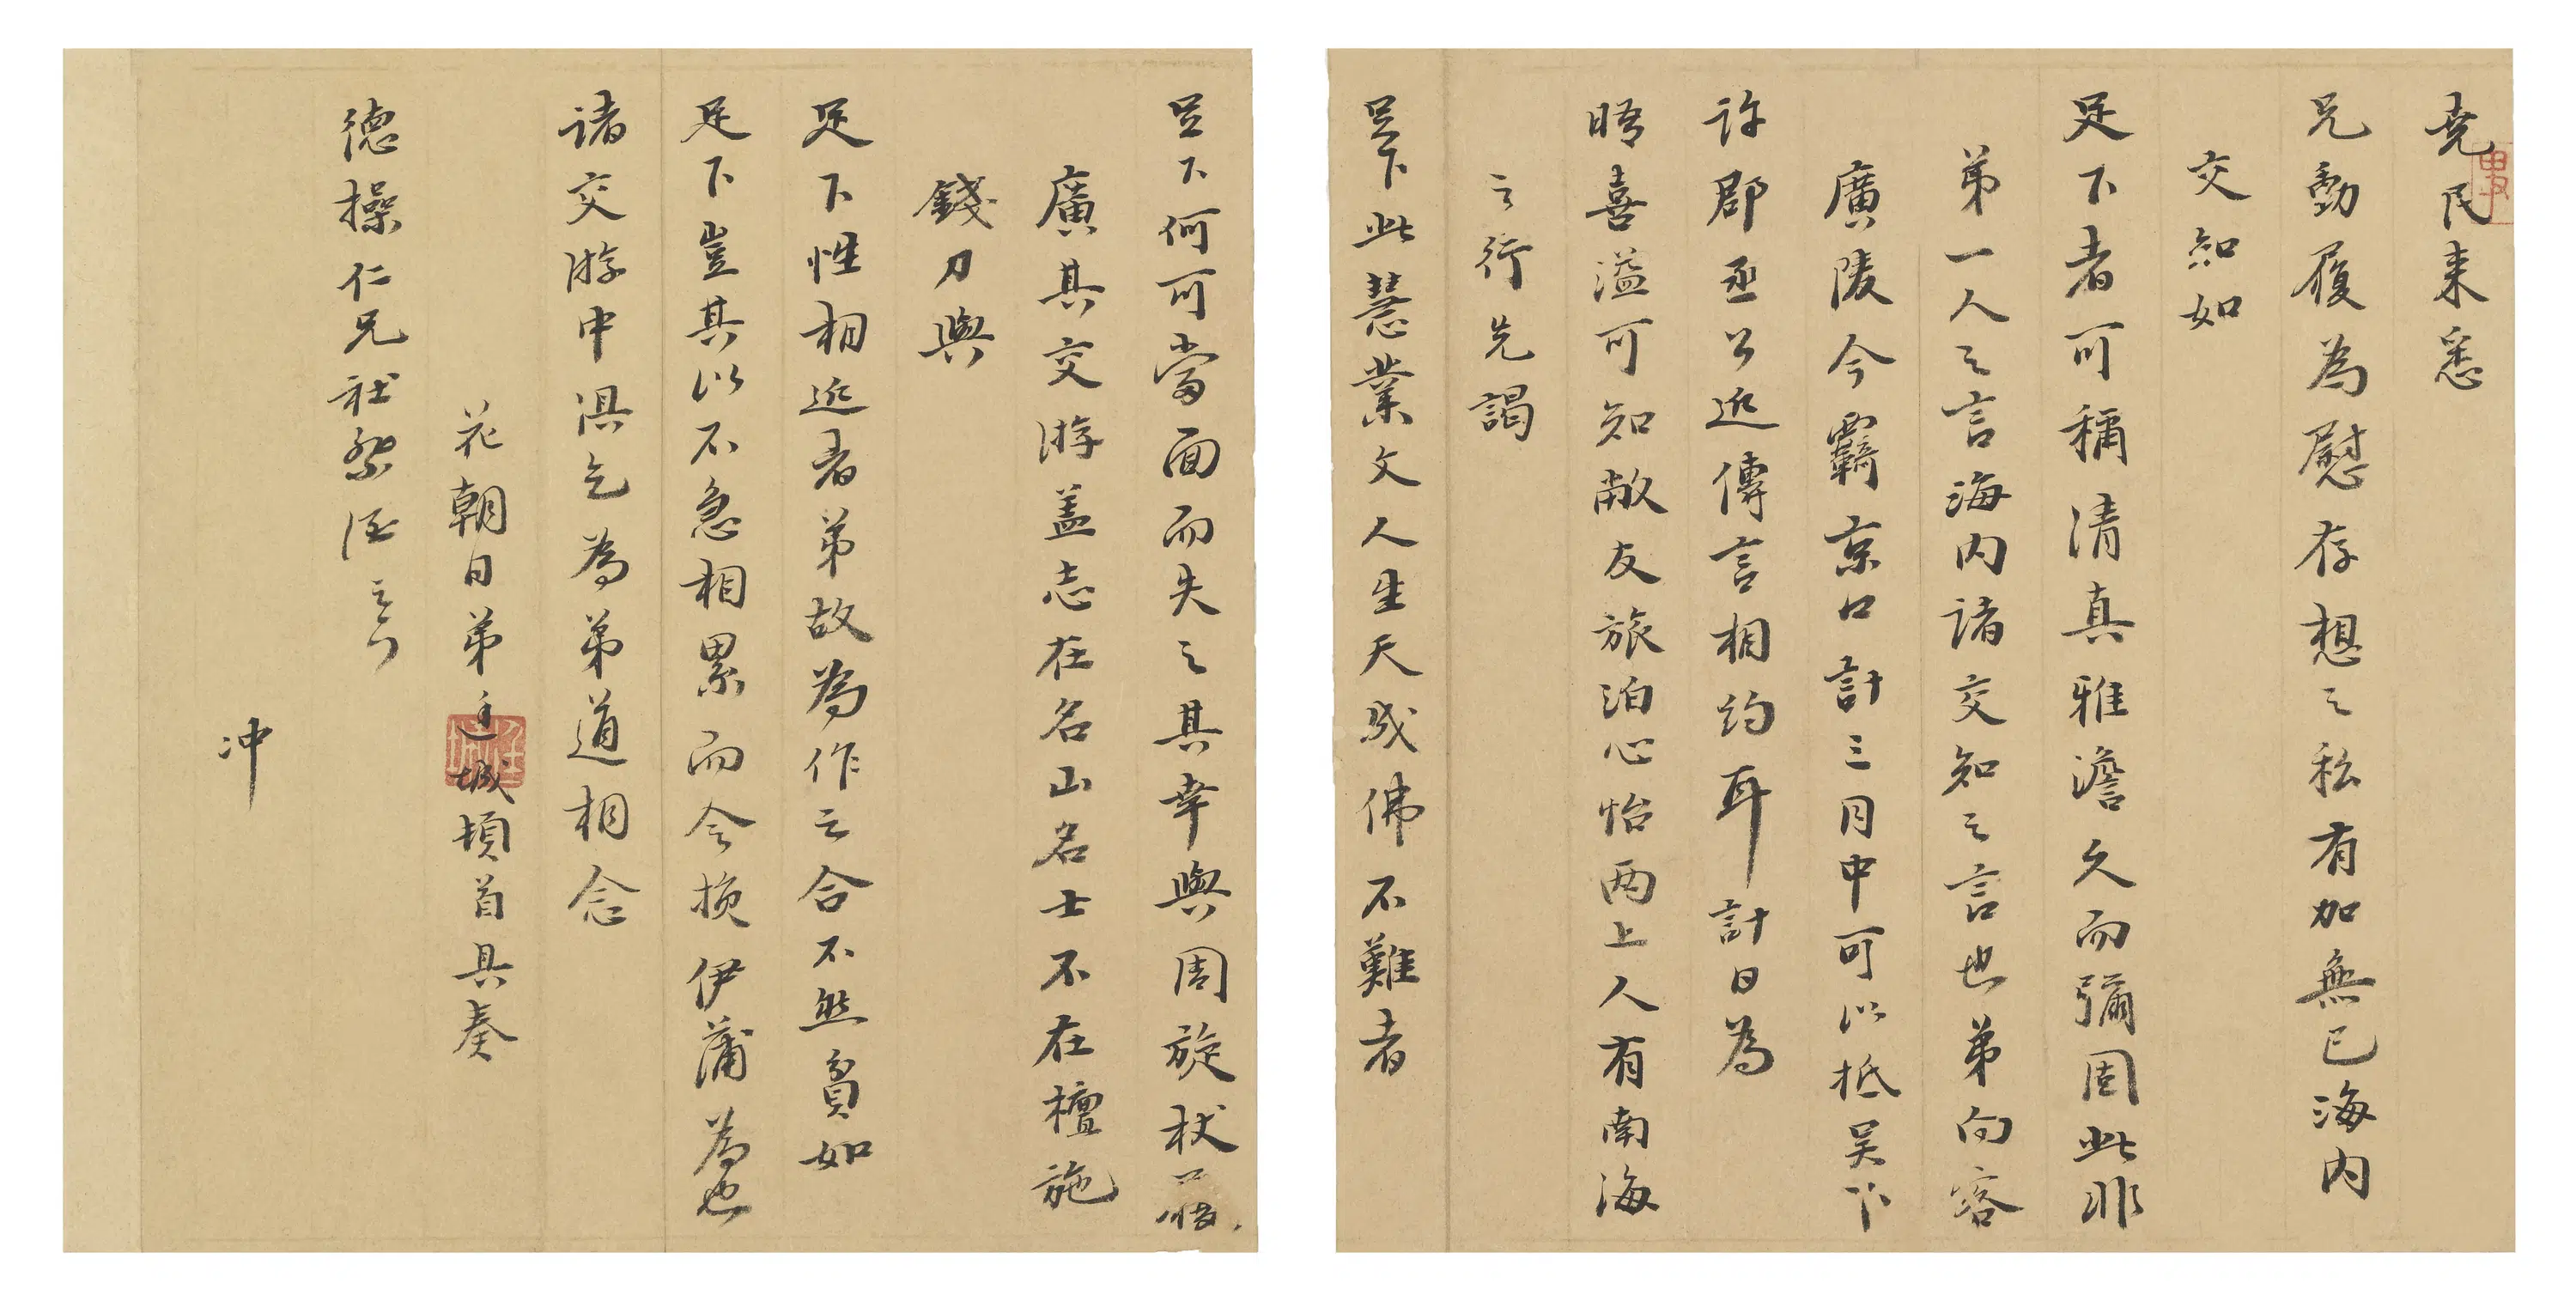 堯民来悉
兄動履為慰存想之私有加無已海内
交知如
足下者可稱清真雅澹久而彌固此非
弟一人之言海内諸交知之言也弟向客
廣陵今羇京口計三月中可以抵吴下
許郡丞公近傳言相約耳計日為
晤喜溢可知敝友旅泊心怡两上人有南海
之行先謁
足下此慧業文人生天成佛不難者
足下何可當面而失之其幸與周旋杖
廣其交游盖志在名山名士不在檀施
錢刀與
足下性相近者弟故為作之合不然貟如
足下豈其以不急相累而令損伊蒲為也
諸交游中俱乞為弟道相念
花朝日弟城頓首具奏
德操仁兄社
冲